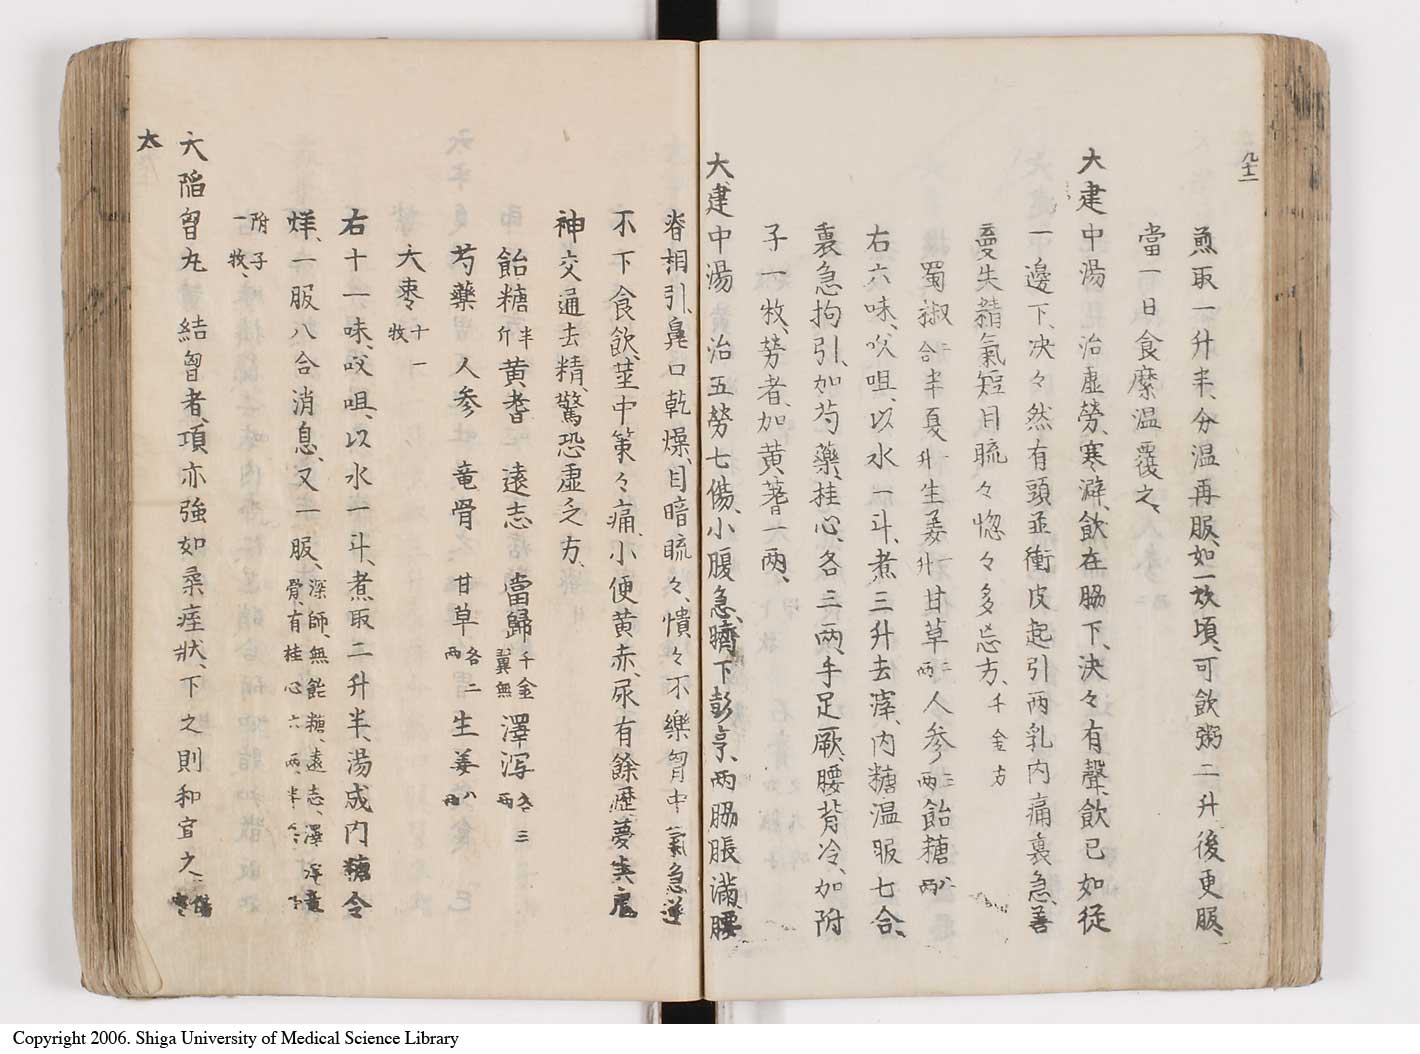 九十二
煎取一升半、分温再服、如一炊頃、可飲粥二升後更服、
當一日食糜温覆之、
大建中湯 治虛勞、寒澼、飲在脇下、決々有聲、飲已如從
一邊下、决々然有頭並衝皮起引两乳内痛裏急、善
夢失精氣短目䀮々惚々多忘方、千金方
蜀椒 合 半夏 升 生姜 甘草 两 人参 两 飴糖 八两
右六味、㕮咀、以水一斗、煮三升去滓、内糖温服七合、
裏急拘引、加芍藥、桂心、各三两、手足厥、腰背冷、加附
子一枚、勞者、加黄蓍一两、
大建中湯 治五勞七傷、小腹急、臍下彭亨、两脇脹滿、腰
脊相引、鼻口乾燥、目暗䀮々、憒々不樂胷中氣急逆
不下食飲、莖中策々痛、小便黄赤、尿有餘瀝、夢
神交通去精、驚恐虛乏方、
飴糖 半斤 黄耆 遠志 當歸 千金翼無 澤泻 各三两
芍藥 人参 竜骨 甘草 各二两 生姜 八两
大棗 十一枚
右十一味、㕮咀、以水一斗、煮取二升半、湯成内糖令
烊、一服八合消息、又一服、深師、無飴糖、遠志、澤泻、竜骨、有桂心六两、半
附子一枚、
大陷胷丸 結胷者、項亦強如桒痓狀、下之則和宜之
大